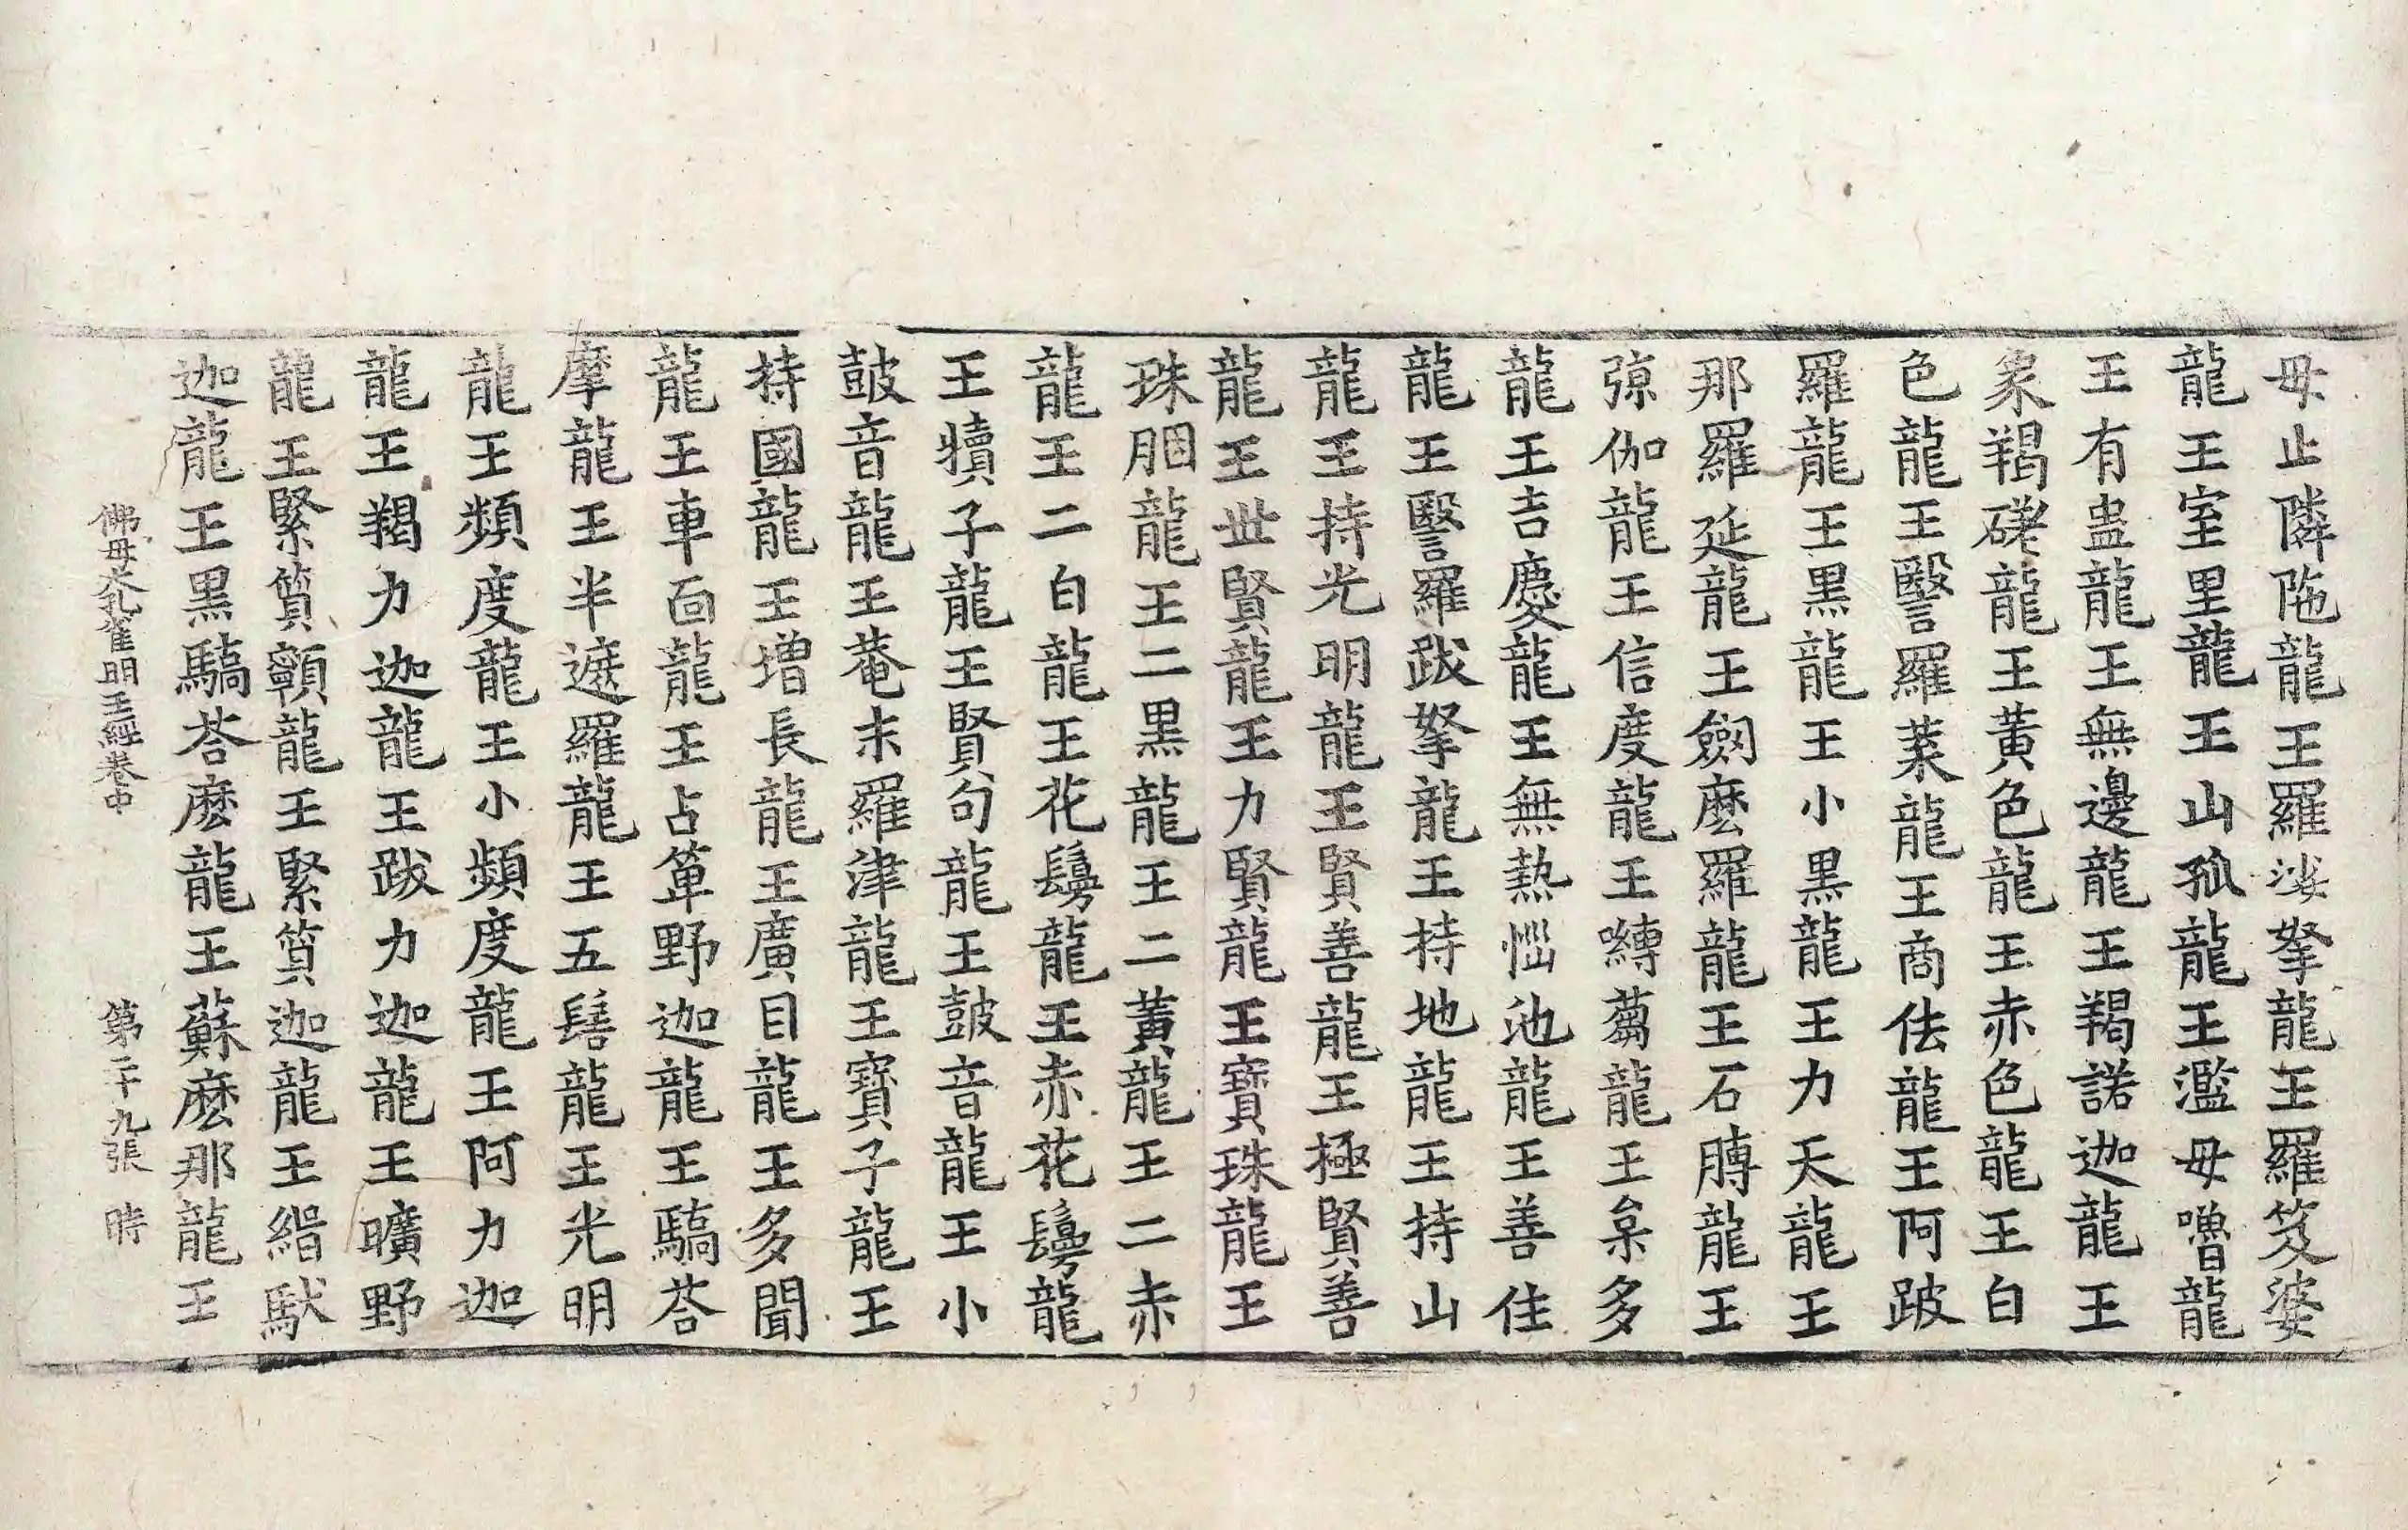 母止隣陁龍王羅㳇拏龍王羅笈婆
龍王室里龍王山孤龍王濫母嚕龍
王有蛊龍王無邊龍王羯諾迦龍王
象羯磋龍王黃色龍王赤色龍王白
色龍王瑿羅葉龍王商佉龍王阿跛
羅龍王黑龍王小黑龍王力天龍王
那羅延龍王劒麽羅龍王石膊龍王
弶伽龍王信度龍王嚩蒭龍王枲多
龍王吉慶龍王無熱惱池龍王善住
龍王瑿羅跋拏龍王持地龍王持山
龍王持光明龍王賢善龍王極賢善
龍王世賢龍王力賢龍王寶珠龍王
珠胭龍王二黑龍王二黃龍王二赤
龍王二白龍王花鬘龍王赤花鬘龍
王犢子龍王賢句龍王鼓音龍王小
鼓音龍王菴末羅津龍王寶子龍王
持國龍王增長龍王廣目龍王多聞
龍王車面龍王占箄野迦龍王驕荅
摩龍王半遮羅龍王五髻龍王光明
龍王頻度龍王小頻度龍王阿力迦
龍王羯力迦龍王跋力迦龍王曠野
龍王緊質顊龍王緊質迦龍王緝馱
迦龍王黑驕荅麽龍王蘇麽那龍王
佛母大孔雀明王經卷中 第二十九張 時